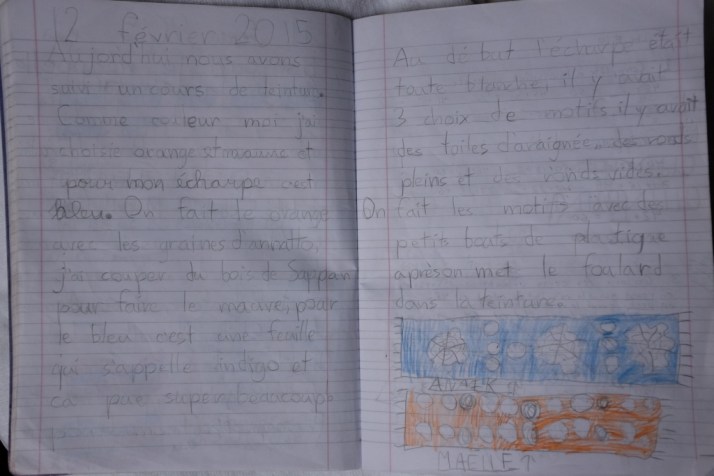 12 février 2015
Aujord'hui nous avons
suivi un cours de teinture.
Comme couleur moi j'ai
choisie orange et mauve et
pour mon écharpe cet
bleu. On fait le orange
avec les graines d'annatto,
j'ai couper du bois de Sappan
pour faire le mauve, pour
le bleu c'est une feuille
qui s'appelle indigo et
ca pue super beaucoup
Au début l'écharpe était
toute blanche, il y avait
3 choix de motifs il y avait
des toiles d'araignée, des ronds
pleins et des ronds vides.
On fait les motifs avec des
petits bouts de plastique
après on met le foulard
dans la teinture.
ANOUK ↑
MAELLE ↑